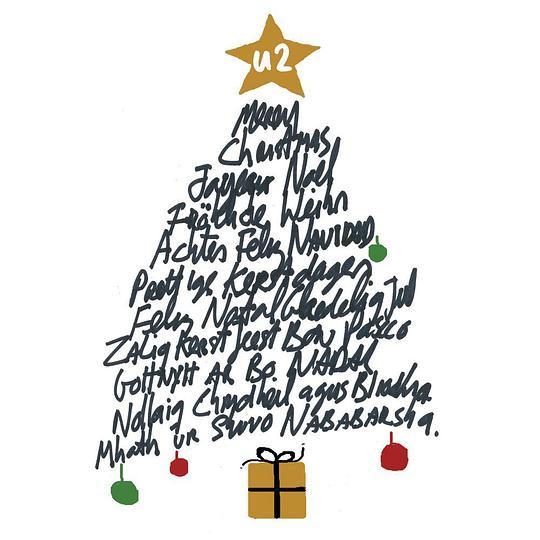 u2
Merry
Christmas
Joyeux Noel
Fröhliche Weihn
Achten Feliz NAVIDAD
Prettige Kerstdagen
Feliz Natal Glaedelig Jul
Zalig Kerstfeest Bon Pasco
Gott Nytt År Bo NADAL
Nollaig Chridheil agus Bliadhna
Mhath ur Shuvo NABABARSHA.